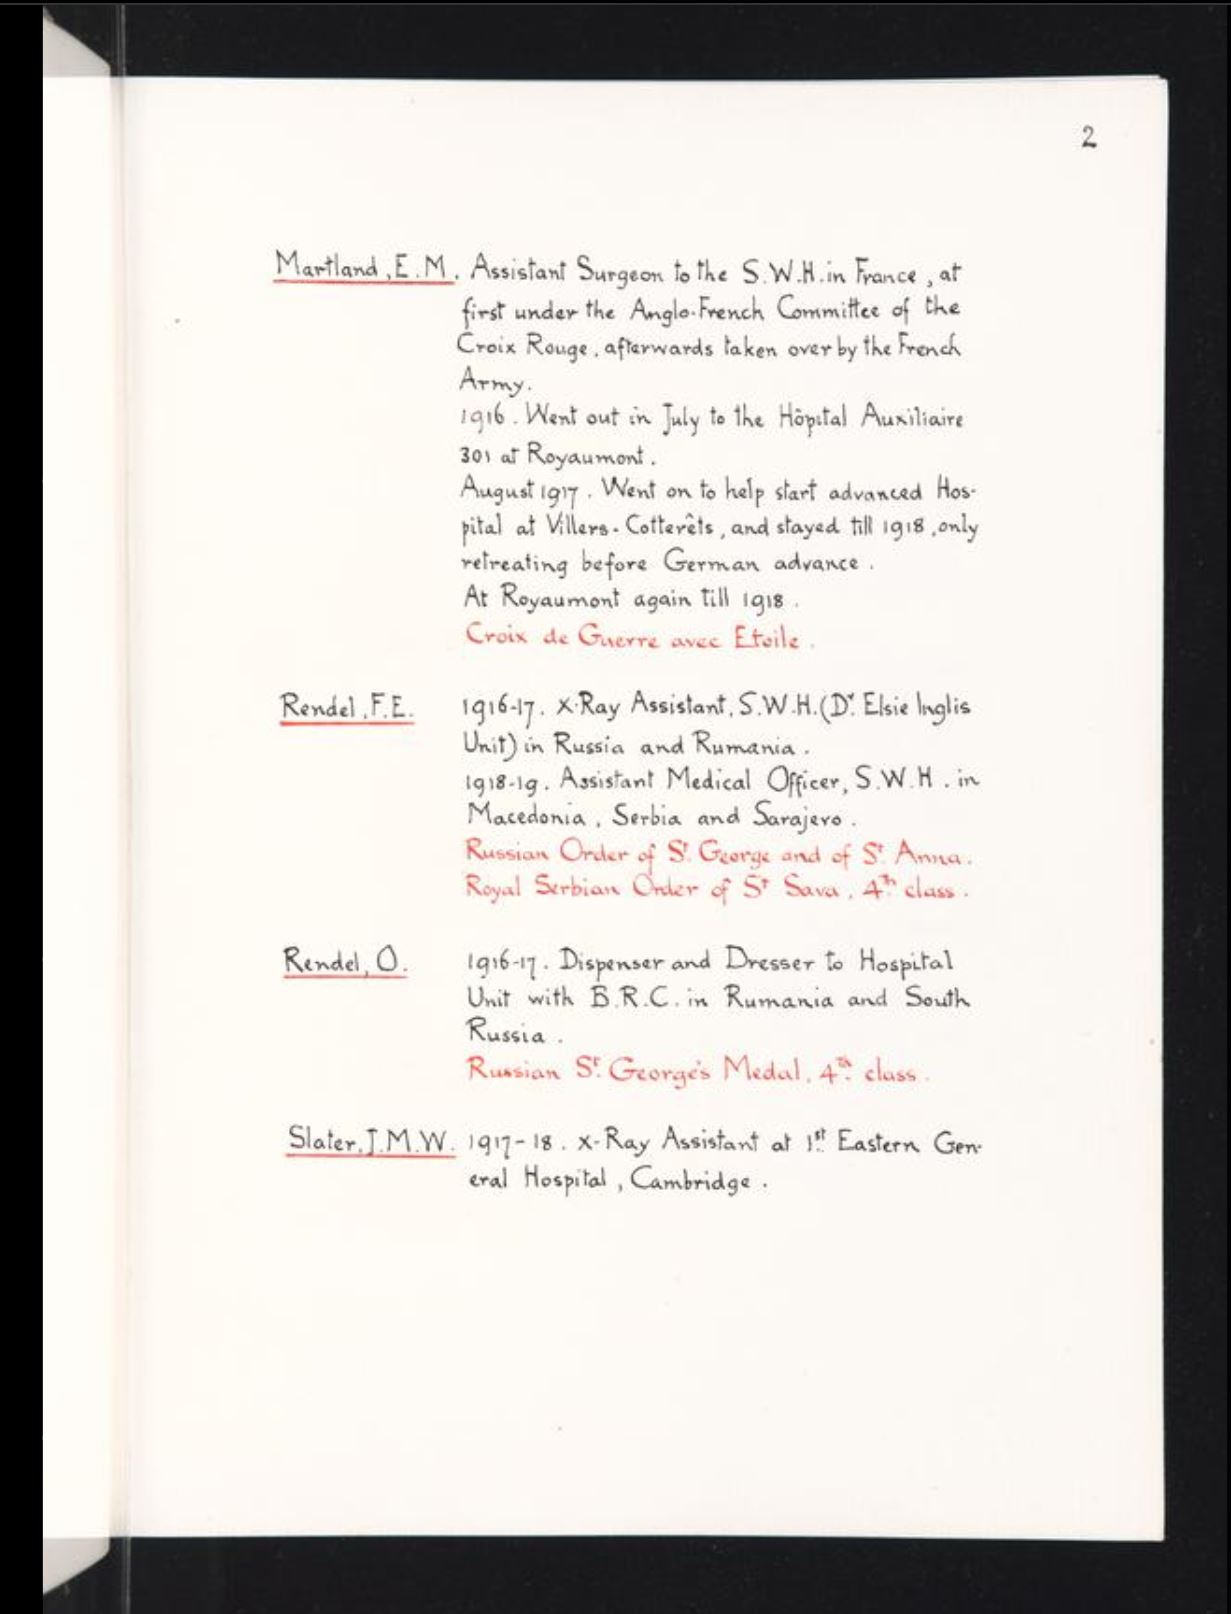 2
Martland, E.M. Assistant Surgeon to the S.W.H. in France, at
first under the Anglo-French Committee of the
Croix Rouge, afterwards taken over by the French
Army.
1916. Went out in July to the Hôpital Auxiliaire
301 at Royaumont.
August 1917. Went on to help start advanced Hos-
pital at Villers-Cotterêts, and stayed till 1918, only
retreating before German advance.
At Royaumont again till 1918.
Croix de Guerre avec Etoile.
Rendel, F.E. 1916-17. X-Ray Assistant, S.W.H. (Dr. Elsie Inglis
Unit) in Russia and Rumania.
1918-19. Assistant Medical Officer, S.W.H. in
Macedonia, Serbia and Sarajevo.
Russian Order of St. George and of St. Anna.
Royal Serbian Order of St Sava, 4th. class.
Rendel, O. 1916-17. Dispenser and Dresser to Hospital
Unit with B.R.C. in Rumania and South
Russia.
Russian St. George's Medal, 4th. class.
Slater, J.M.W. 1917-18. X-Ray Assistant at 1st. Eastern Gen-
eral Hospital, Cambridge.